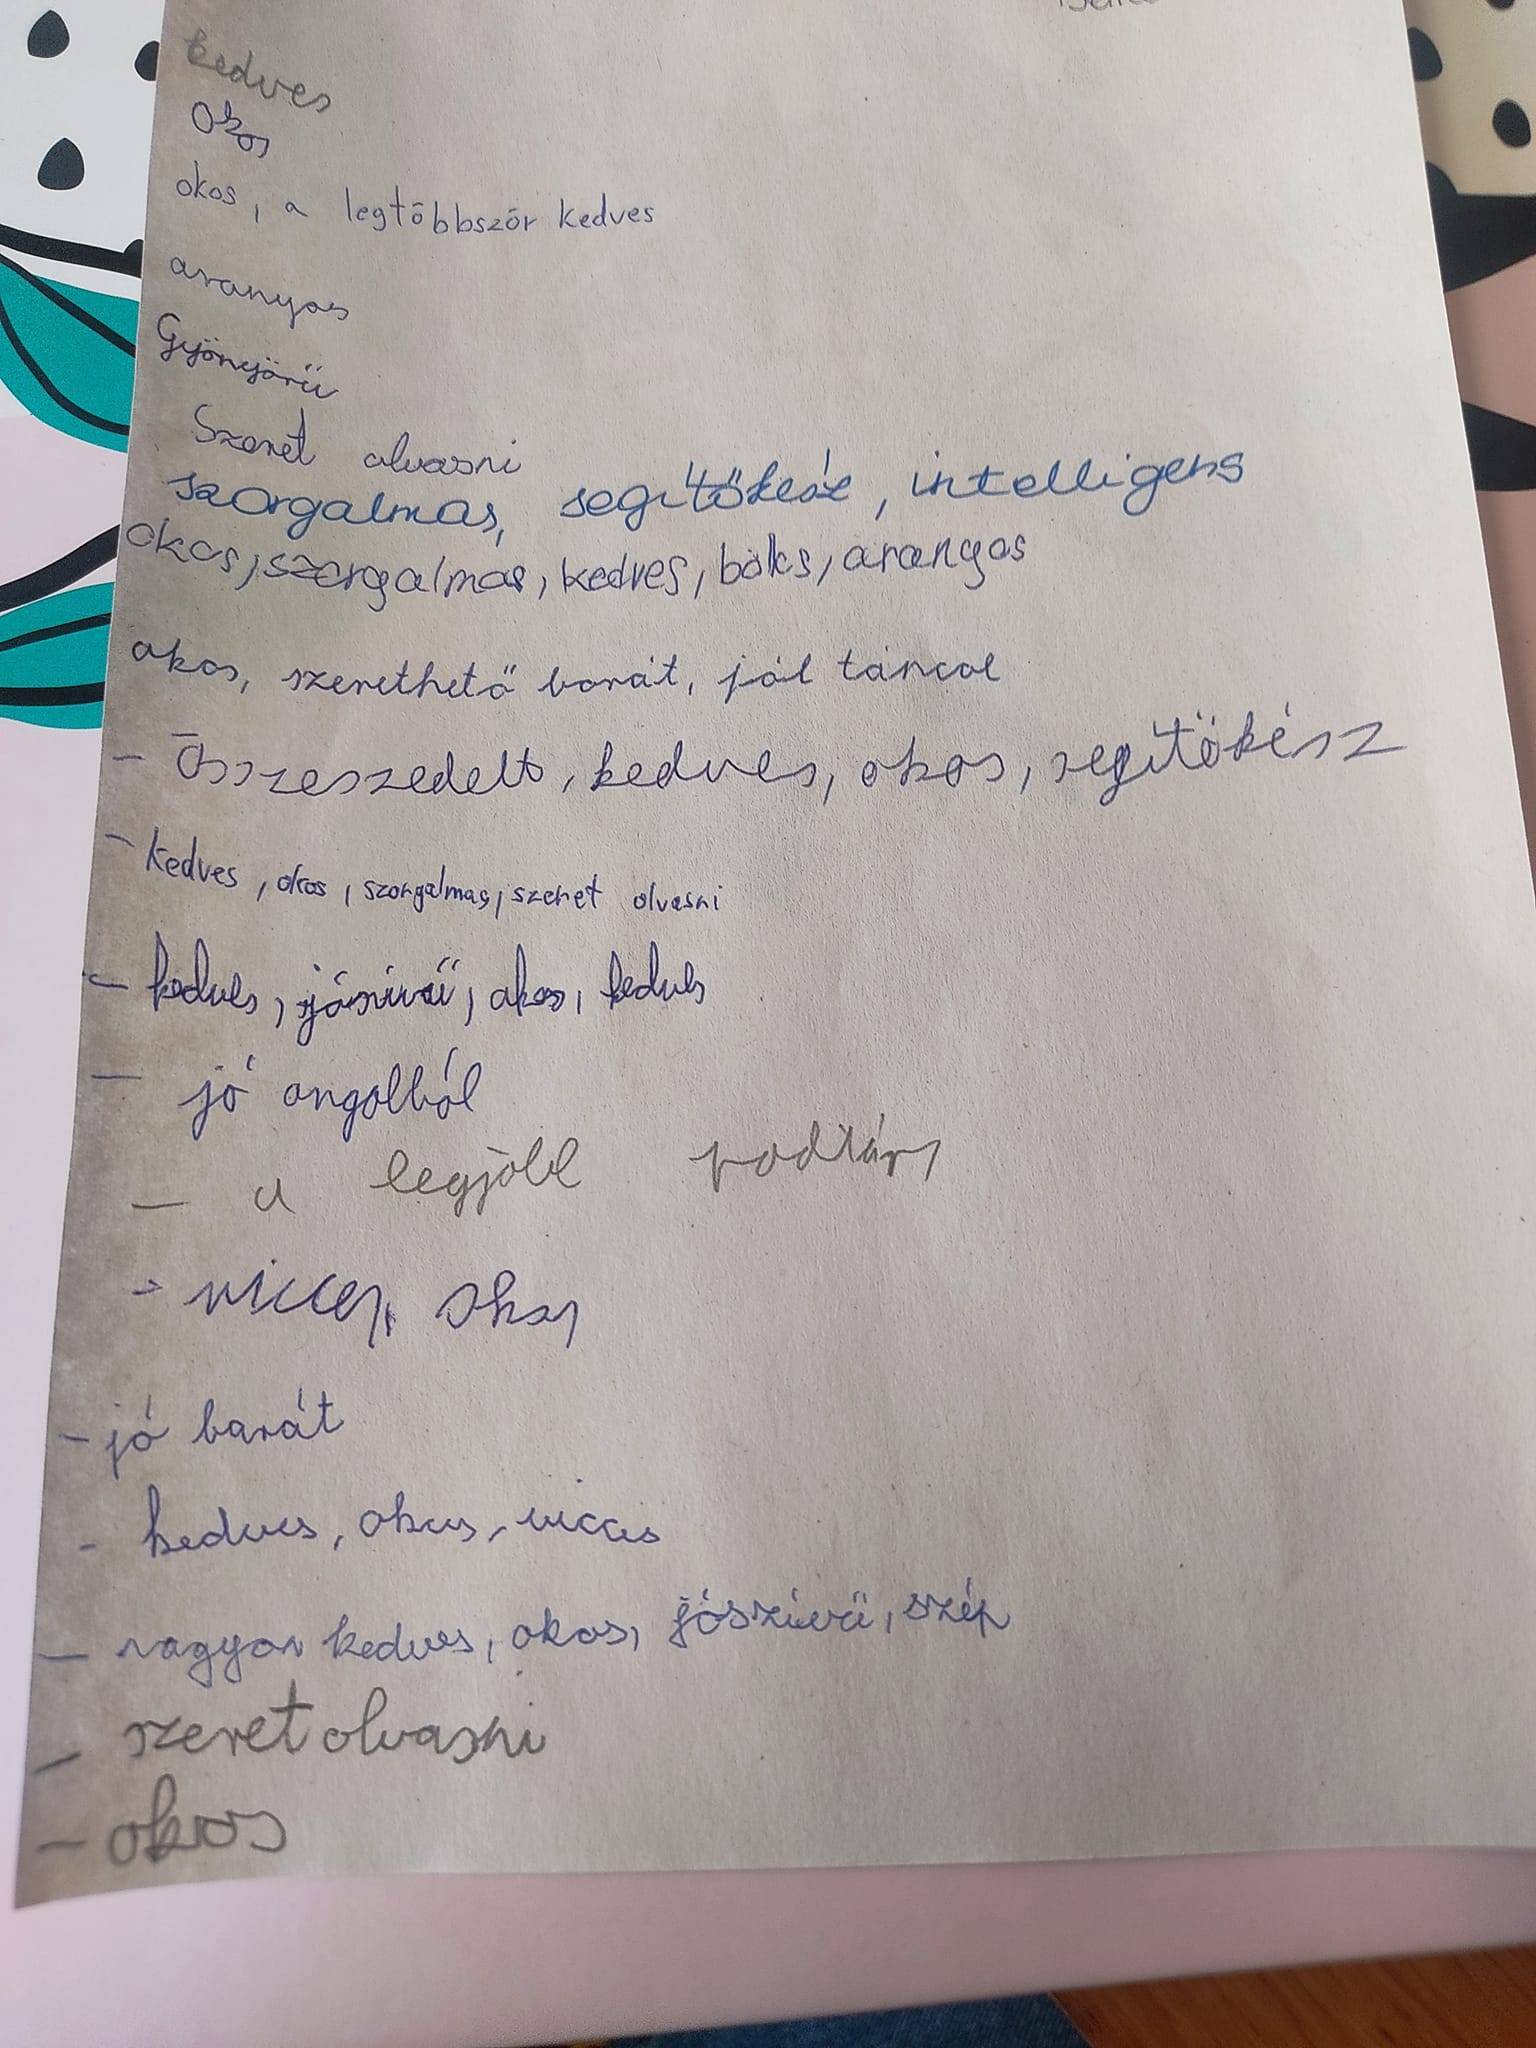 kedves
Okos
okos, a legtöbbször kedves
aranyos
Gyönyörű
Szeret olvasni
szorgalmas, segítőkész, intelligens
okos, szorgalmas, kedves, böks, aranyos
okos, szerethető barát, jól táncol
- Összeszedett, kedves, okos, segítőkész
- kedves, okos, szorgalmas, szeret olvasni
- kedves, jószívű, okos, kedves
- jó angolból
- a legjobb padtárs
- vicces, okos
- jó barát
- kedves, okos, vicces
- nagyon kedves, okos, jószívű, szép
- szeret olvasni
- okos